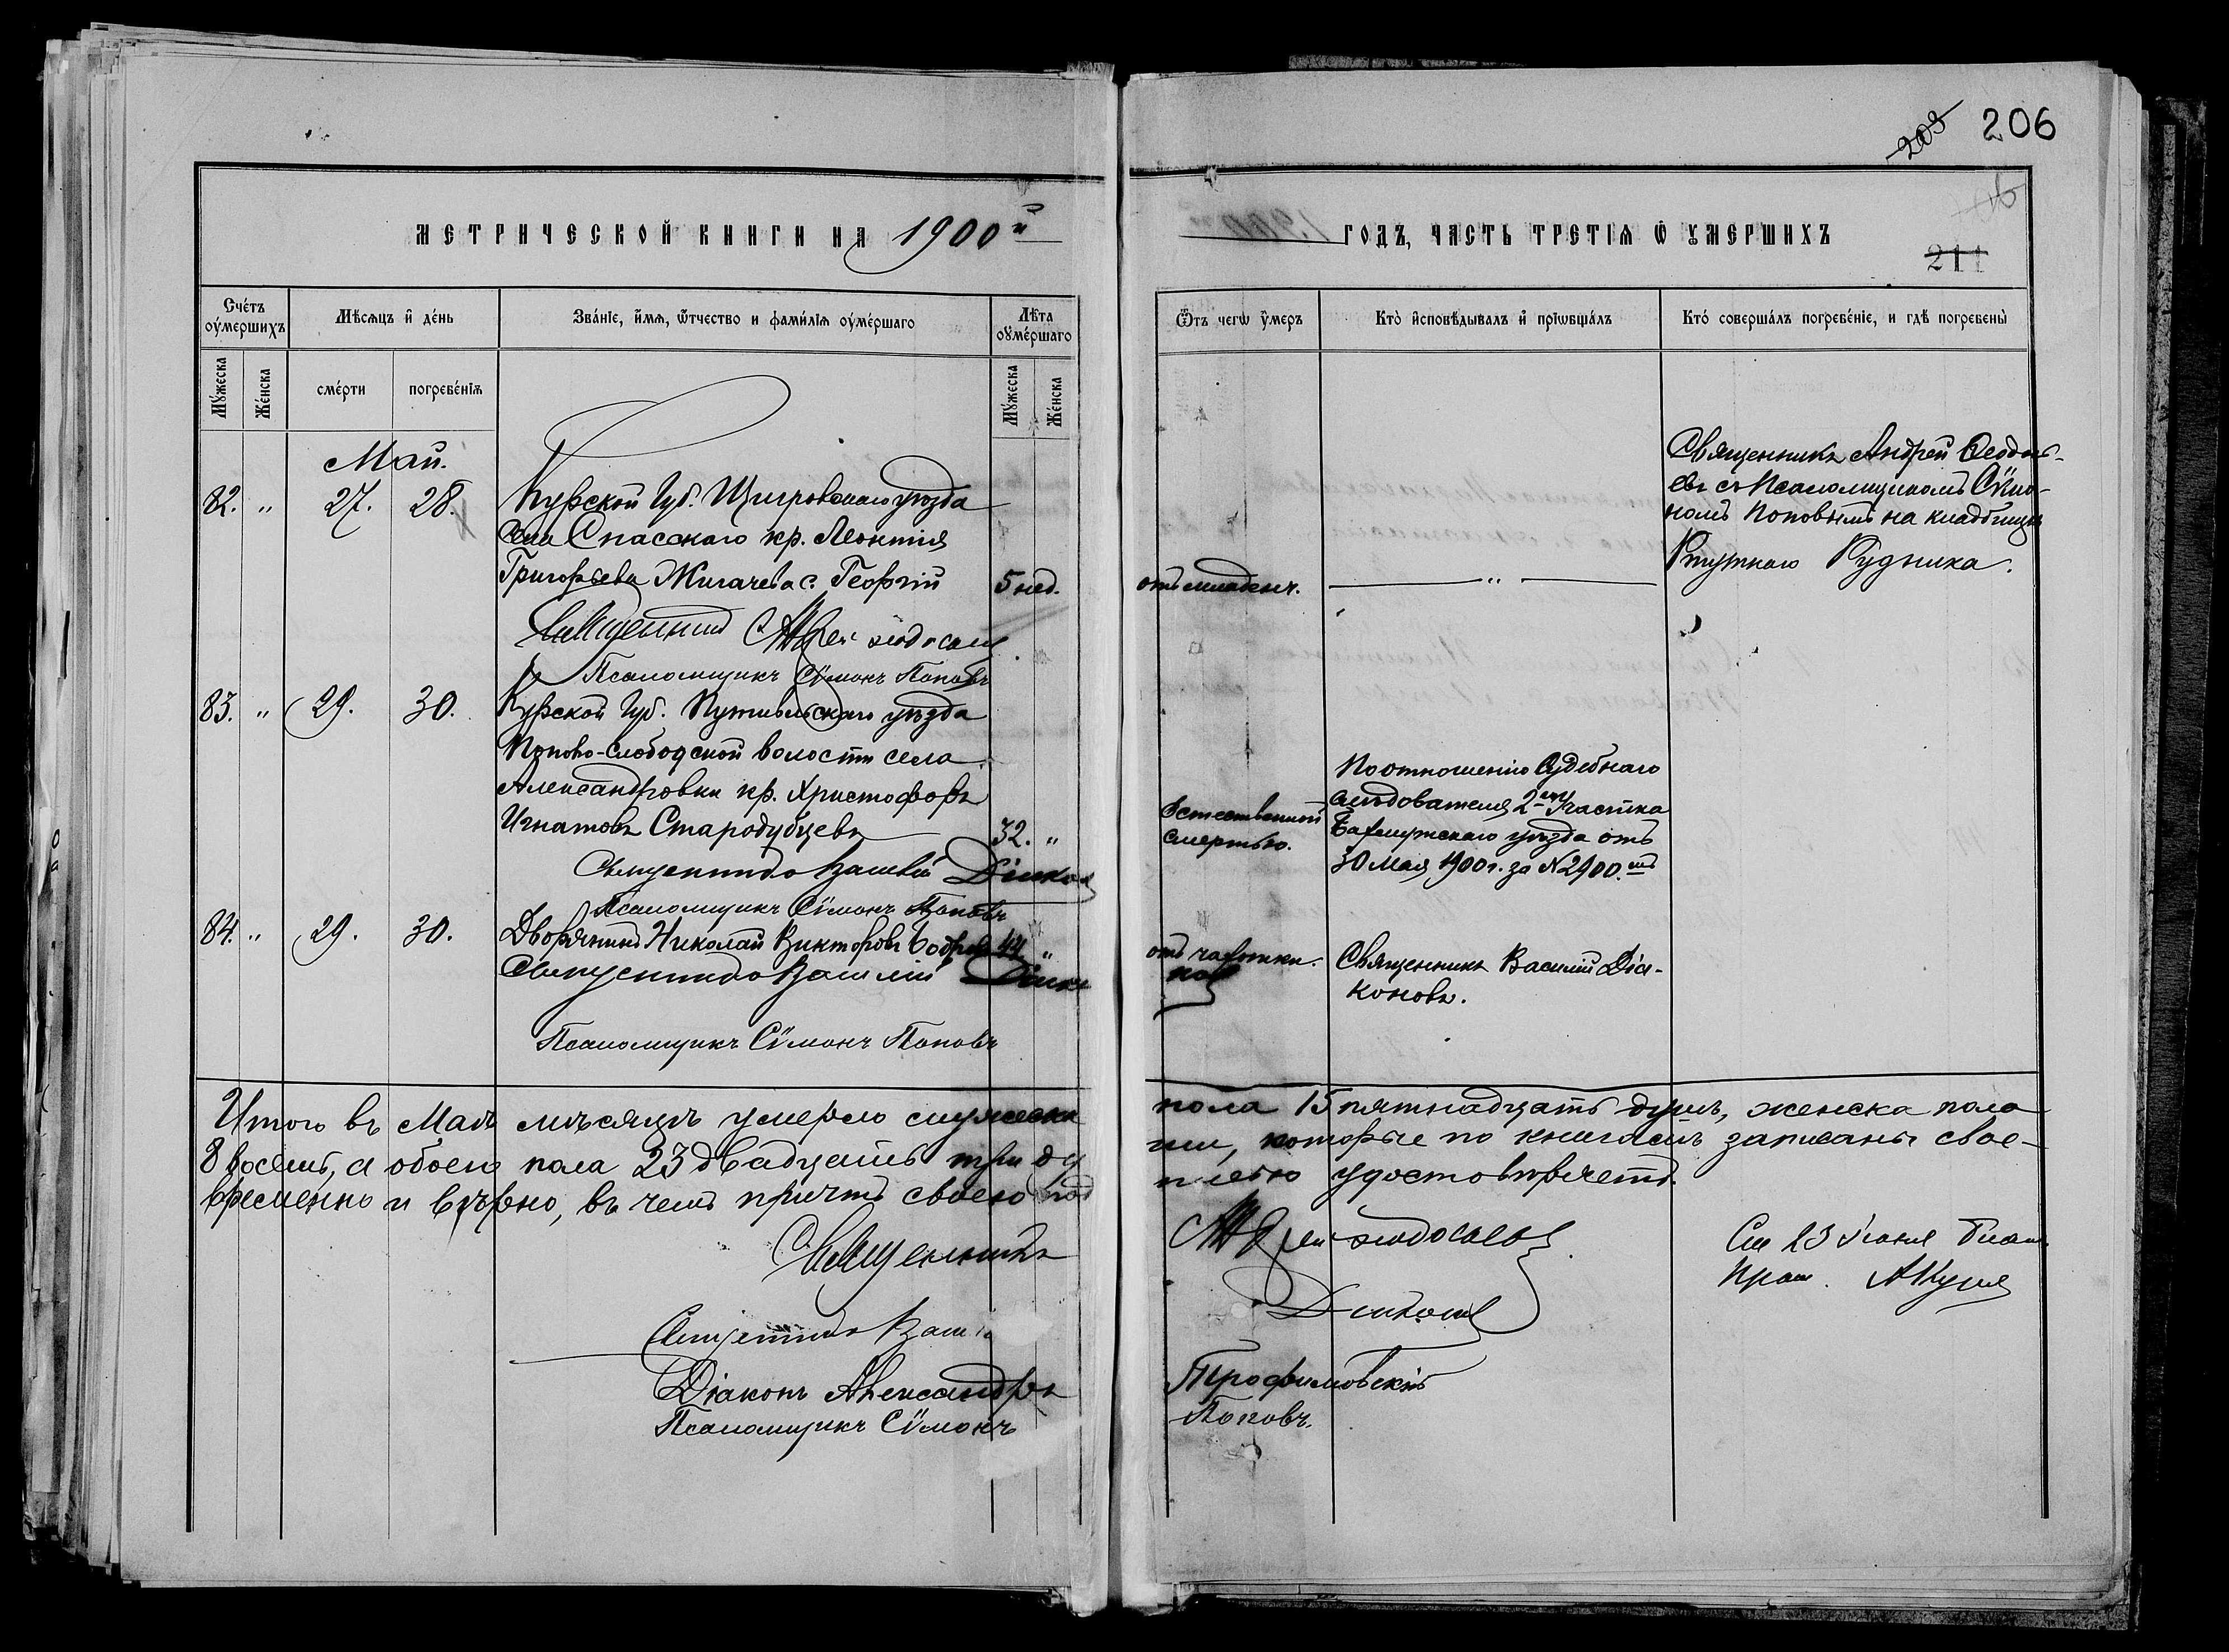 203 206
МЕТРИЧЕСКОЙ КНИГИ НА 1900й
ГОДЪ, ЧАСТЬ ТРЕТІѦ Ѿ ОУМЕРШИХЪ
211
Сче́тъ оу҆ме́ршихъ
Мѣ́сѧцъ и҆ де́нь
Зва́нїе, и҆́мѧ, ѿтчество и фами́лїѧ оу҆ме́ршаго
Лѣ́та оу҆ме́ршаго
Ѿ́тъ чегѡ̀ у҆́меръ
Кто̀ и҆сповѣ́дывалъ и҆ прїѡбща́лъ
Кто́ соверша́лъ погребе́нїе, и гдѣ̀ погребены̀
Мꙋ́жеска
Же́нска
сме́рти
погребе́нїѧ
Мꙋ́жеска
Же́нска
Май.
82. " 27. 28.
Курской Губ. Щигровскаго уѣзда
села Спасскаго кр. Леонтія
Григорьева Жигачева с. Георгій
5 нед.
отъ младенч.
"
Священникъ Андрей Ѳеодось-
евъ съ Псаломщикомъ Сѵмо-
номъ Поповымъ на кладбищѣ
Ртутнаго Рудника.
Священникъ Андрей
Псаломщикъ Сѵмонъ Поповъ
83. " 29. 30.
Курской Губ. Путивльскаго уѣзда
Попово-слободской волости села
Александровки кр. Христофоръ
Игнатовъ Стародубцевъ
32. "
Естественной
смертью.
По отношенію Судебнаго
слѣдователя 2го Участка
Бахмутскаго уѣзда отъ
30 Мая 1900 г. за N 2900.
Священникъ Василій Діако
Псаломщикъ Сѵмонъ Поповъ
84. " 29. 30.
Дворянинъ Николай Викторовъ
44 "
отъ чахотки.
Священникъ Василій Діа-
коновъ.
Священникъ Василій Діако
новъ
Псаломщикъ Сѵмонъ Поповъ
Итого въ Маѣ мѣсяцѣ умерло мужеска
пола 15 пятнадцать душъ, женска пола
8 восемь, а обоего пола 23 двадцать три ду
ши, которые по книгамъ записаны свое-
временно и вѣрно, въ чемъ причтъ своею под
писью удостовѣряетъ.
Священникъ Андрей
Священникъ Василій Діаконовъ
Діаконъ Александръ Трофимовскій
Псаломщикъ Сѵмонъ Поповъ.
23 Іюня